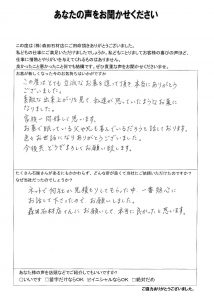 あなたの声をお聞かせください
この度は(株)森田石材店にご用命頂きありがとうございました。
お客が悲しくなったそのお気持ちはいかがですか
この度はとても立派なお墓を造って頂き本当にありがとう
ございました。
素敵な出来上がりを見て私達が思っていたようなお墓に
なりました。
家族一同嬉しく思います。
お墓で眠っている父や兄も喜んでいるだろうと話しております。
色々とお世話になりありがとうございました。
今後共どうぞよろしくお願い致します。
たくさん石屋さんがあるにもかかわらず、どんな所が良くて当社にご依頼いただけたのですか?
ネットで何社か見積もりしてもらった中一番親切に
お話して下さったので、お願いしました。
森田石材店さんにお願いして本当に良かったと思います。
あなた様の声を店頭などでご紹介してもいいですか?
□いいです □苗字だけならOK □イニシャルならOK □絶対だめ
ご協力ありがとうございました。